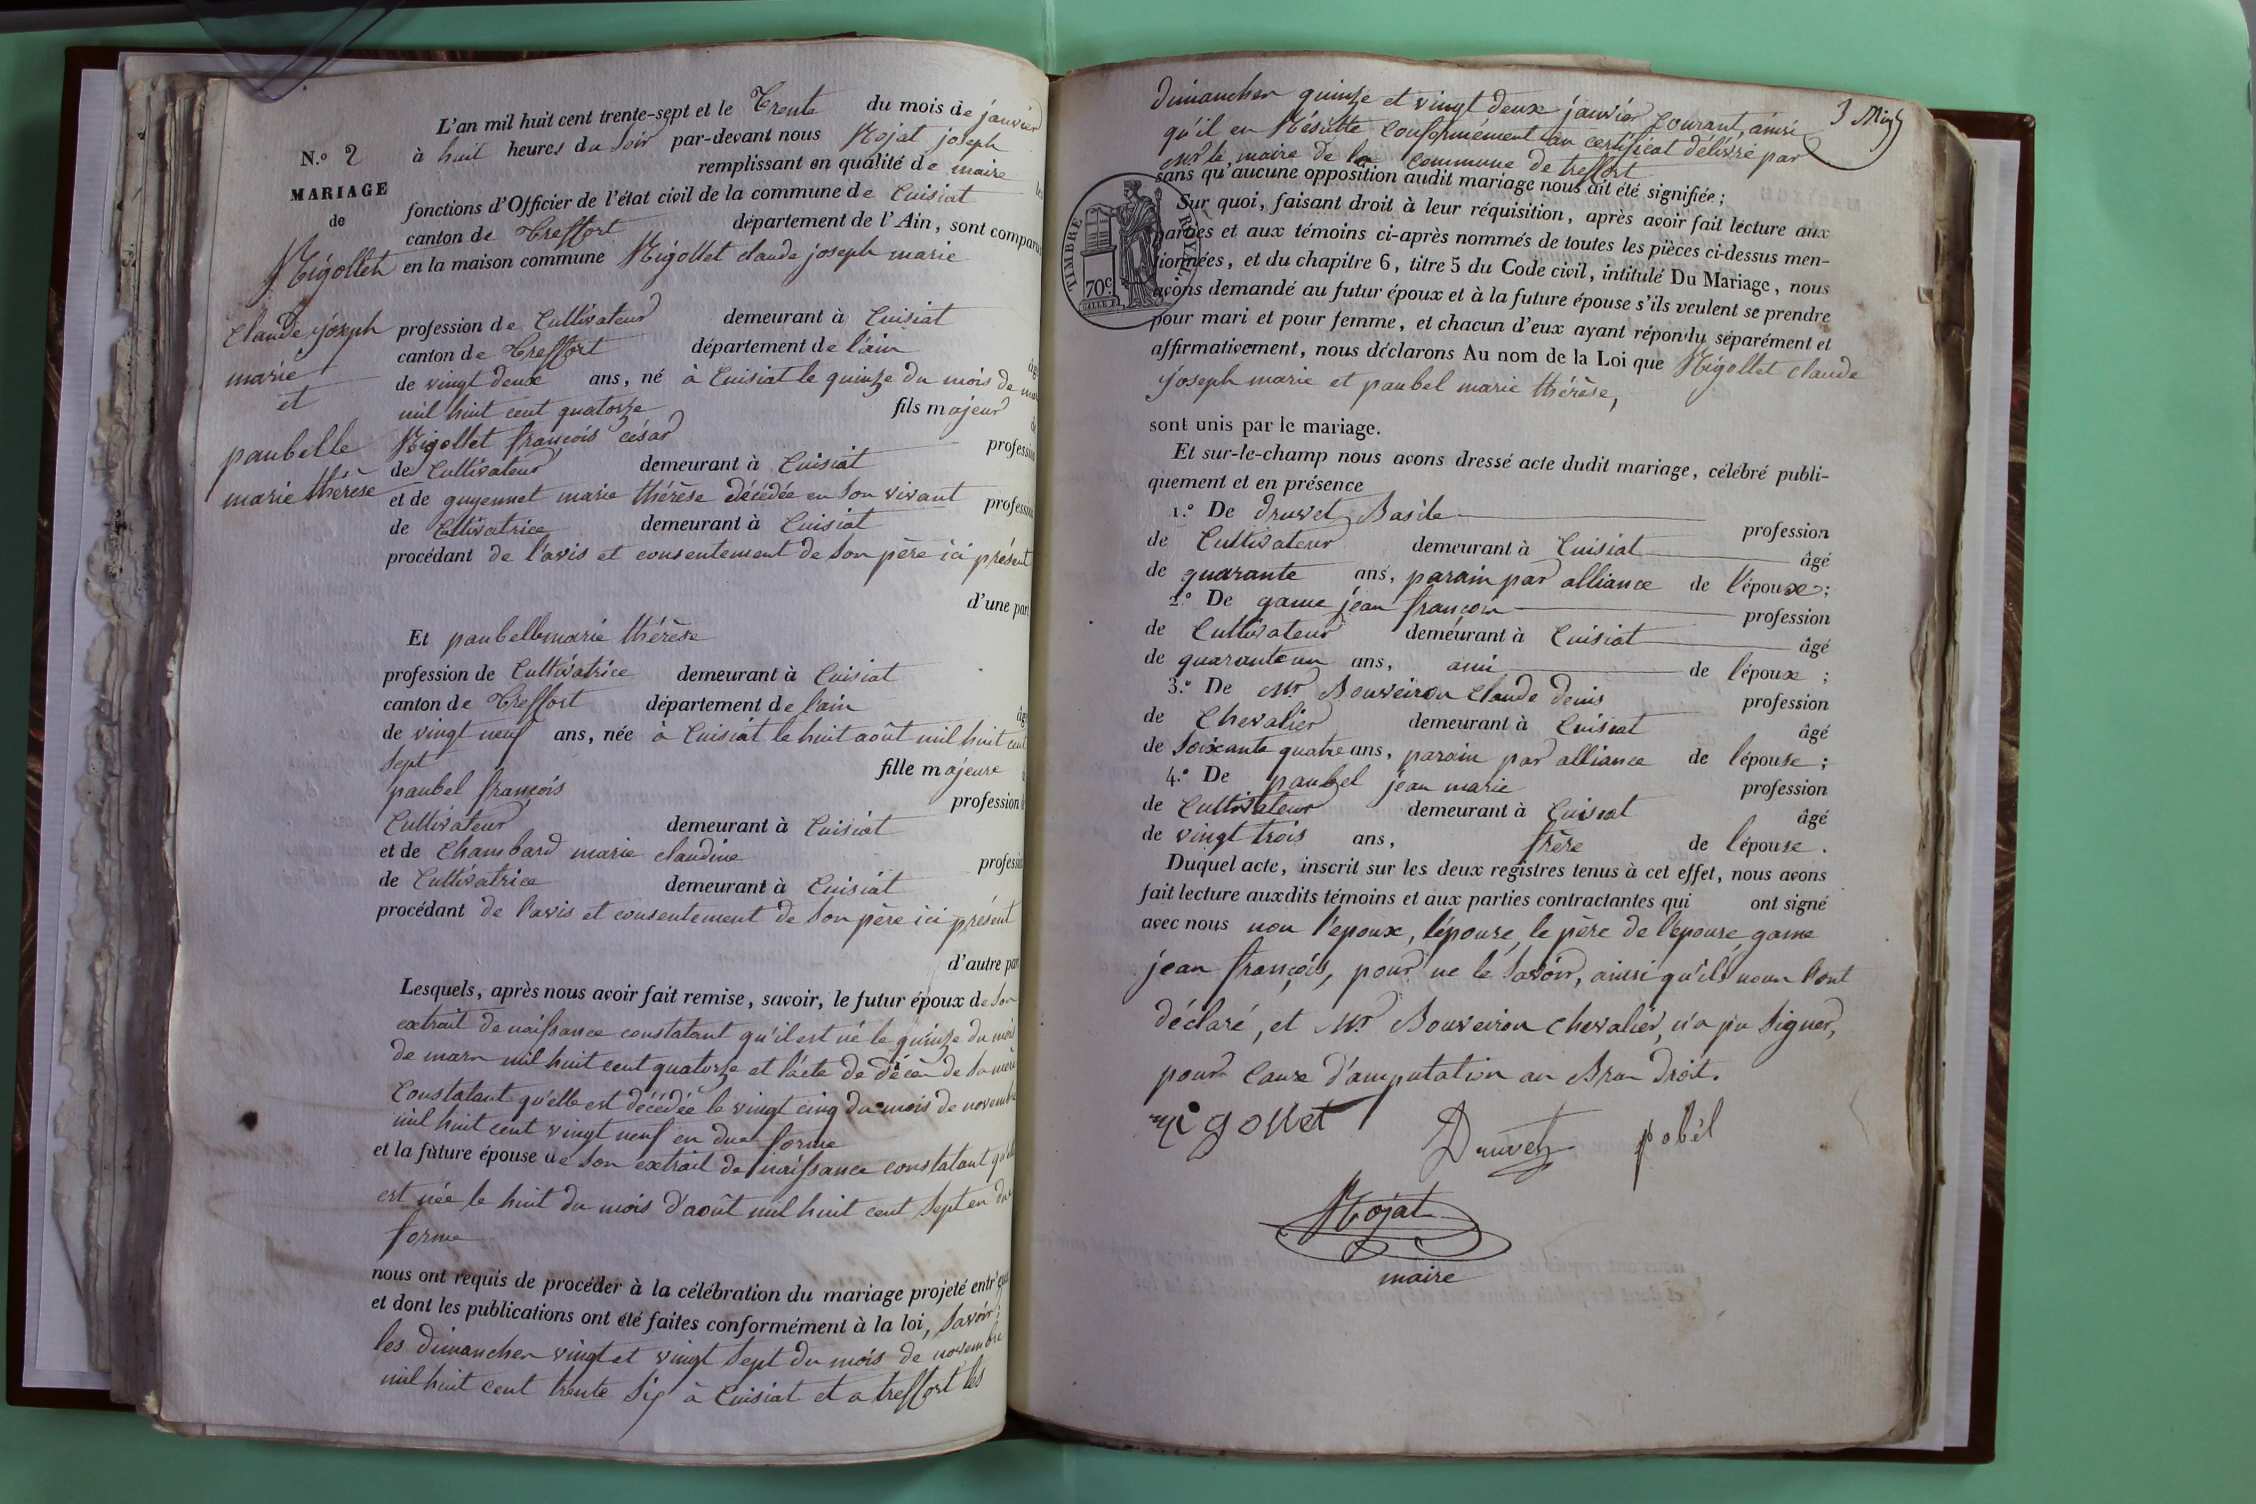 N.o 2
MARIAGE
de
Nigollet
claude joseph
marie
et
paubelle
marie thérèse
L'an mil huit cent trente-sept et le Trente du mois de janvier
à huit heures du soir par-devant nous Nojat joseph
remplissant en qualité de maire les
fonctions d'Officier de l'état civil de la commune de Cuisiat
canton de Treffort département de l'Ain, sont comparus
en la maison commune Nigollet claude joseph marie
profession de Cultivateur demeurant à Cuisiat
canton de Treffort département de l'ain
de vingt deux ans, né à Cuisiat le quinze du mois de mars
mil huit cent quatorze fils majeur de
Nigollet françois césar profession
de Cultivateur demeurant à Cuisiat
et de guyennet marie thérèse décédée en son vivant profession
de Cultivatrice demeurant à Cuisiat
procédant de l'avis et consentement de son père ici présent
d'une part
Et paubelle marie thérèse
profession de Cultivatrice demeurant à Cuisiat
canton de Treffort département de l'ain
de vingt neuf ans, née à Cuisiat le huit août mil huit cent
sept fille majeure
paubel françois profession de
Cultivateur demeurant à Cuisiat
et de Chambard marie claudine profession
de Cultivatrice demeurant à Cuisiat
procédant de l'avis et consentement de son père ici présent
d'autre part
Lesquels, après nous avoir fait remise, savoir, le futur époux de son
extrait de naissance constatant qu'il est né le quinze du mois
de mars mil huit cent quatorze et l'acte de décès de sa mère
Constatant qu'elle est décédée le vingt cinq du mois de novembre
mil huit cent vingt neuf en due forme
et la future épouse de son extrait de naissance constatant qu'elle
est née le huit du mois d'août mil huit cent sept en due
forme
nous ont requis de procéder à la célébration du mariage projeté entr'eux
et dont les publications ont été faites conformément à la loi, savoir;
les dimanches vingt et vingt sept du mois de novembre
mil huit cent trente six à Cuisiat et a treffort les
dimanches quinze et vingt deux janvier courant, ainsi
qu'il en Résulte conformément au certificat délivré par
Mr le maire de la commune de treffort
sans qu'aucune opposition audit mariage nous ait été signifiée;
TIMBRE ROYAL
70c.
Sur quoi, faisant droit à leur réquisition, après avoir fait lecture aux
parties et aux témoins ci-après nommés de toutes les pièces ci-dessus men-
tionnées, et du chapitre 6, titre 5 du Code civil, intitulé Du Mariage, nous
avons demandé au futur époux et à la future épouse s'ils veulent se prendre
pour mari et pour femme, et chacun d'eux ayant répondu séparément et
affirmativement, nous déclarons Au nom de la Loi que Nigollet claude
joseph marie et paubel marie thérèse,
sont unis par le mariage.
Et sur-le-champ nous avons dressé acte dudit mariage, célébré publi-
quement et en présence
1.o De druvet Basile profession
de Cultivateur demeurant à Cuisiat âgé
de quarante ans, parain par alliance de l'époux;
2.o De game jean françois profession
de Cultivateur demeurant à Cuisiat âgé
de quarante un ans, ami de l'époux;
3.o De Mr Bouveiron Claude denis profession
de Chevalier demeurant à Cuisiat âgé
de soixante quatre ans, parain par alliance de l'épouse;
4.o De paubel jean marie profession
de Cultivateur demeurant à Cuisiat âgé
de vingt trois ans, frère de l'épouse.
Duquel acte, inscrit sur les deux registres tenus à cet effet, nous avons
fait lecture auxdits témoins et aux parties contractantes qui ont signé
avec nous non l'époux, l'épouse, le père de l'épouse, game
jean françois, pour ne le savoir, ainsi qu'ils nous l'ont
déclaré, et Mr Bouveiron chevalier, n'a pu signer,
pour cause d'amputation au Bras droit.
nigollet Druvet pobel
Nojat
maire